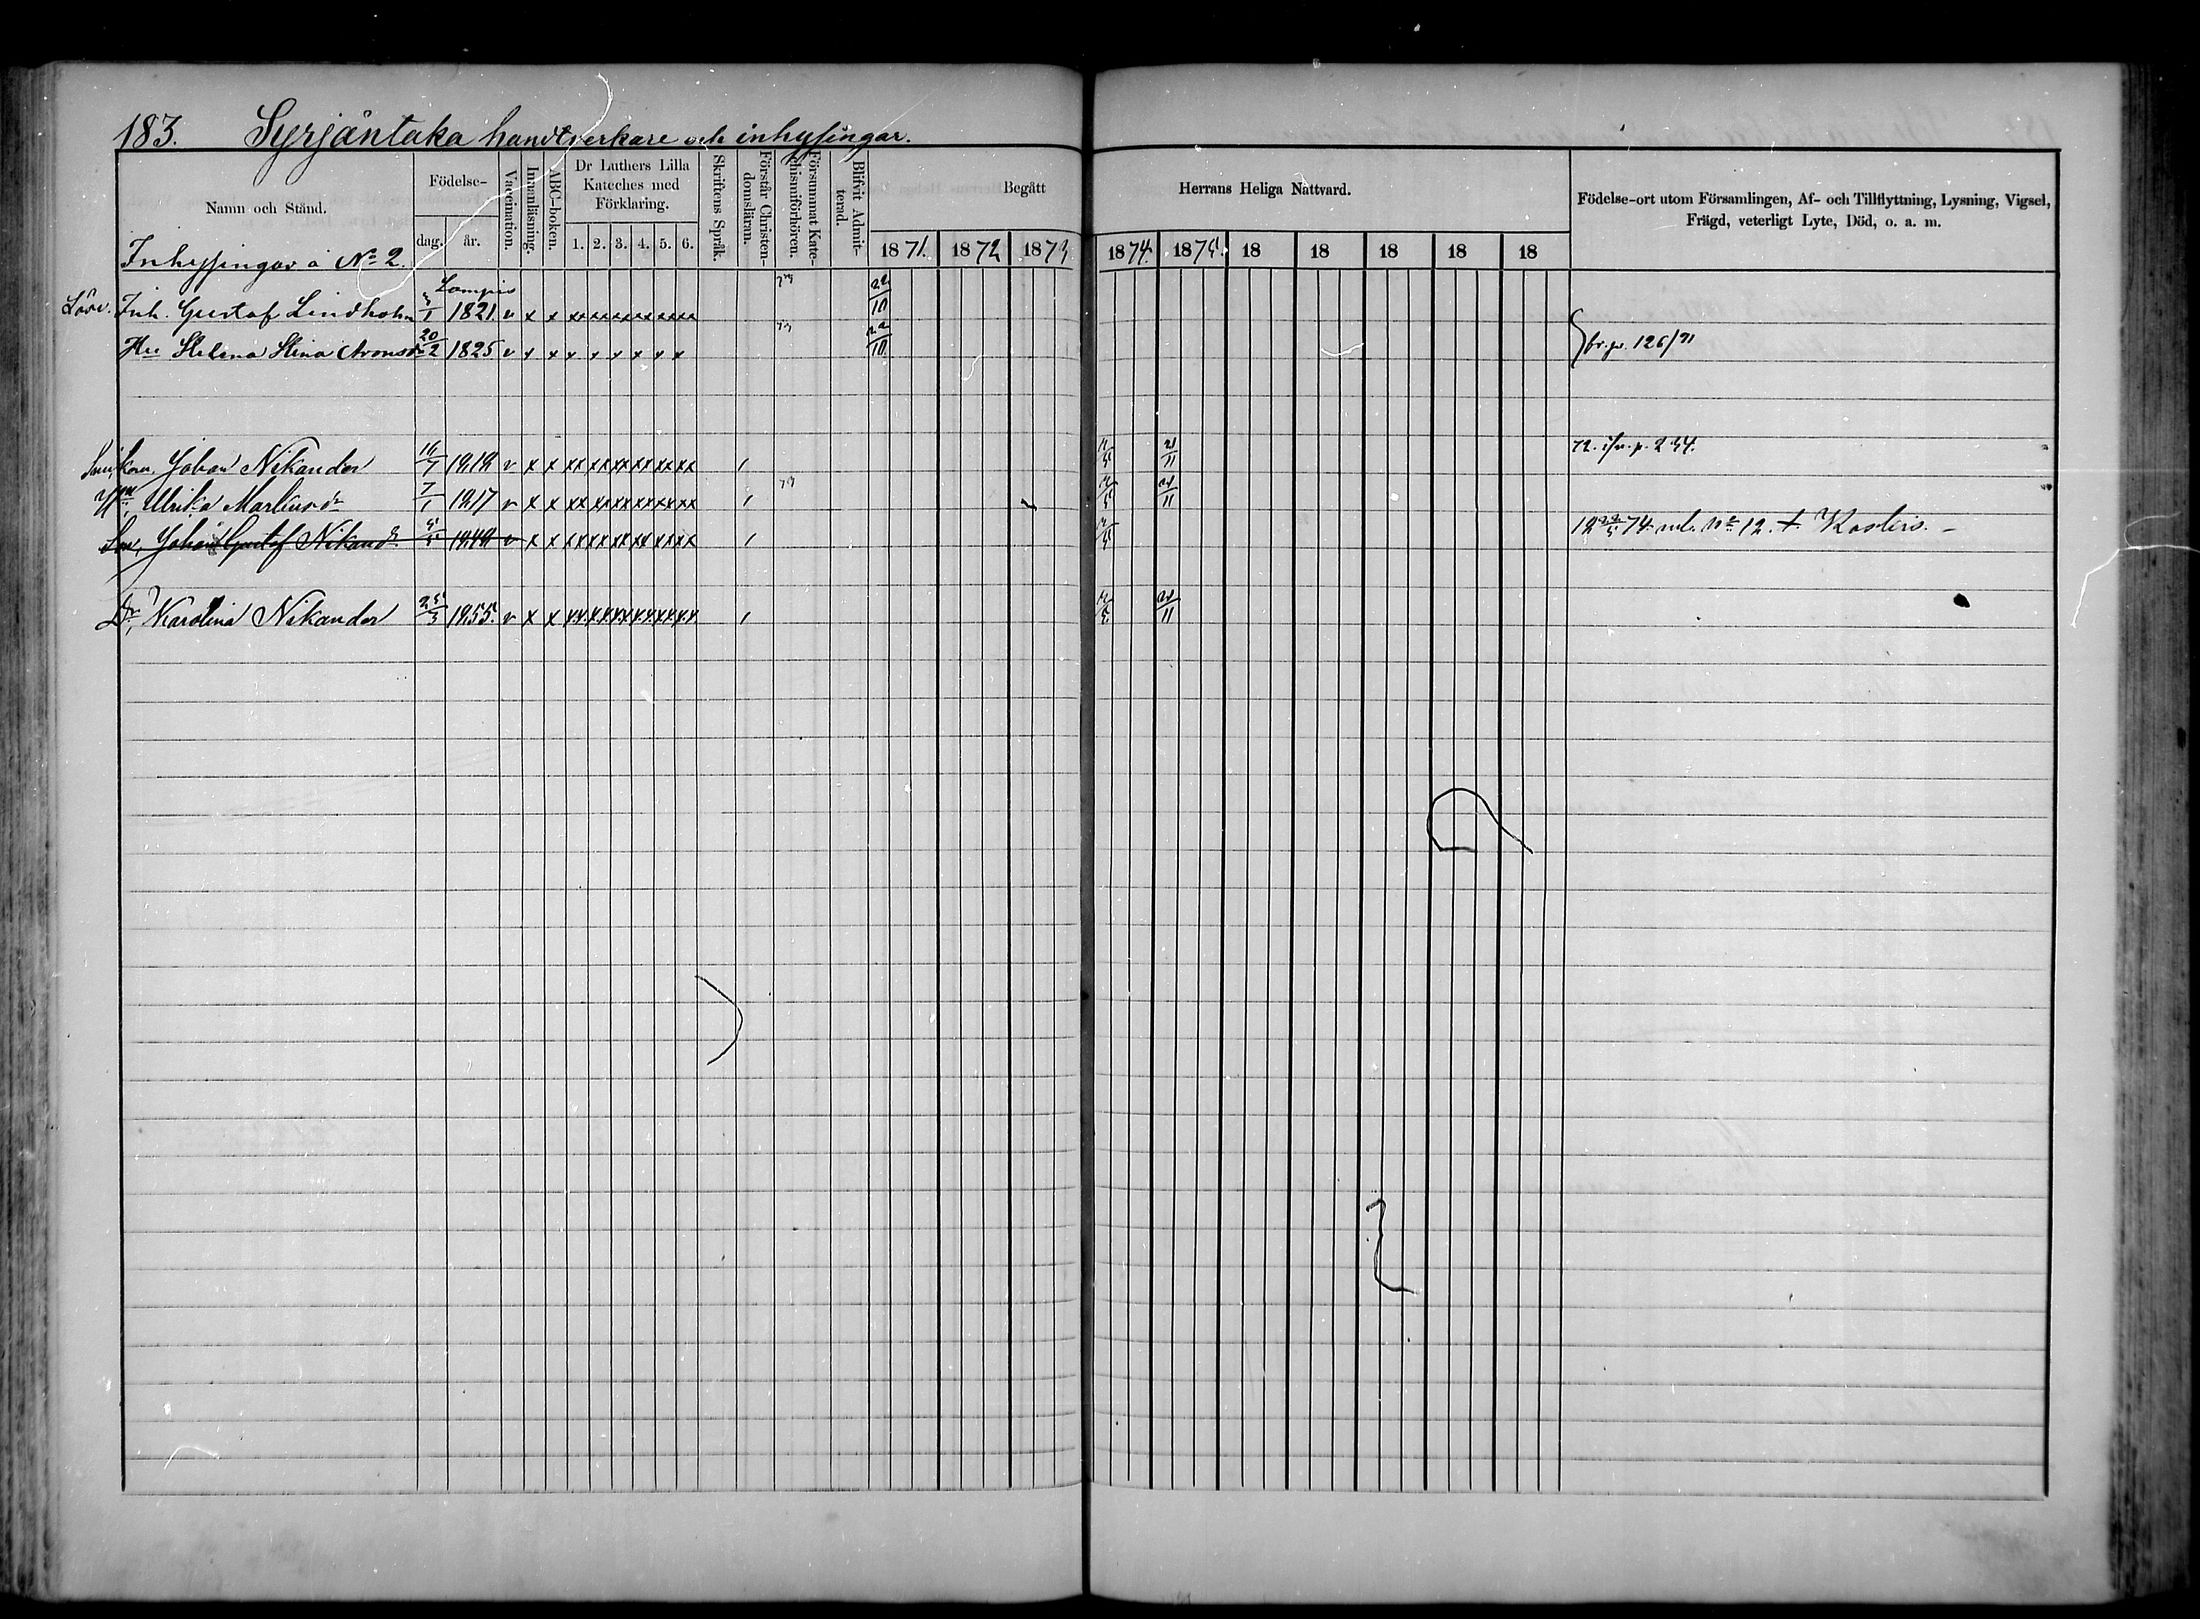 183. Syrjäntaka handtverkare och inhysingar.
Namn och Stånd.
Födelse-
dag. år.
Vaccination.
Innanläsning.
ABC-boken.
Dr Luthers Lilla
Kateches med
Förklaring.
1. 2. 3. 4. 5. 6.
Skriftens Språk.
Förstår Christen-
domsläran.
Försummat Kate-
chismiförhören.
Blifvit Admit-
terad.
Begått Herrans Heliga Nattvard.
1871. 1872 1873 1874. 1875. 18 18 18 18 18
Födelse-ort utom Församlingen, Af- och Tillflyttning, Lysning, Vigsel,
Frägd, veterligt Lyte, Död, o. a. m.
Inhysingar å No 2.
Lampis
Inh. Gustaf Lindholm 3/1 1821. v x x xx xx xx xx xx xx 22/10
Hu Helena Stina Aronsdr 20/2 1825 v x x x x x x x x 22/10 br. p. 126/71
Johan Nikander 16/7 1818 v x x xx xx xx xx xx xx / 21/11 72. i/n. p. 234.
Ulrika Martinsdr 7/1 1817 v x x xx xx xx xx xx xx / 21/11
Son, Johan Gustaf Nikandr 5/5 1848 v x x xx xx xx xx xx xx / 18 22/5 74 No 12. +
Dr, Karolina Nikander 25/3 1855. v x x xx xx xx xx xx xx / 21/11